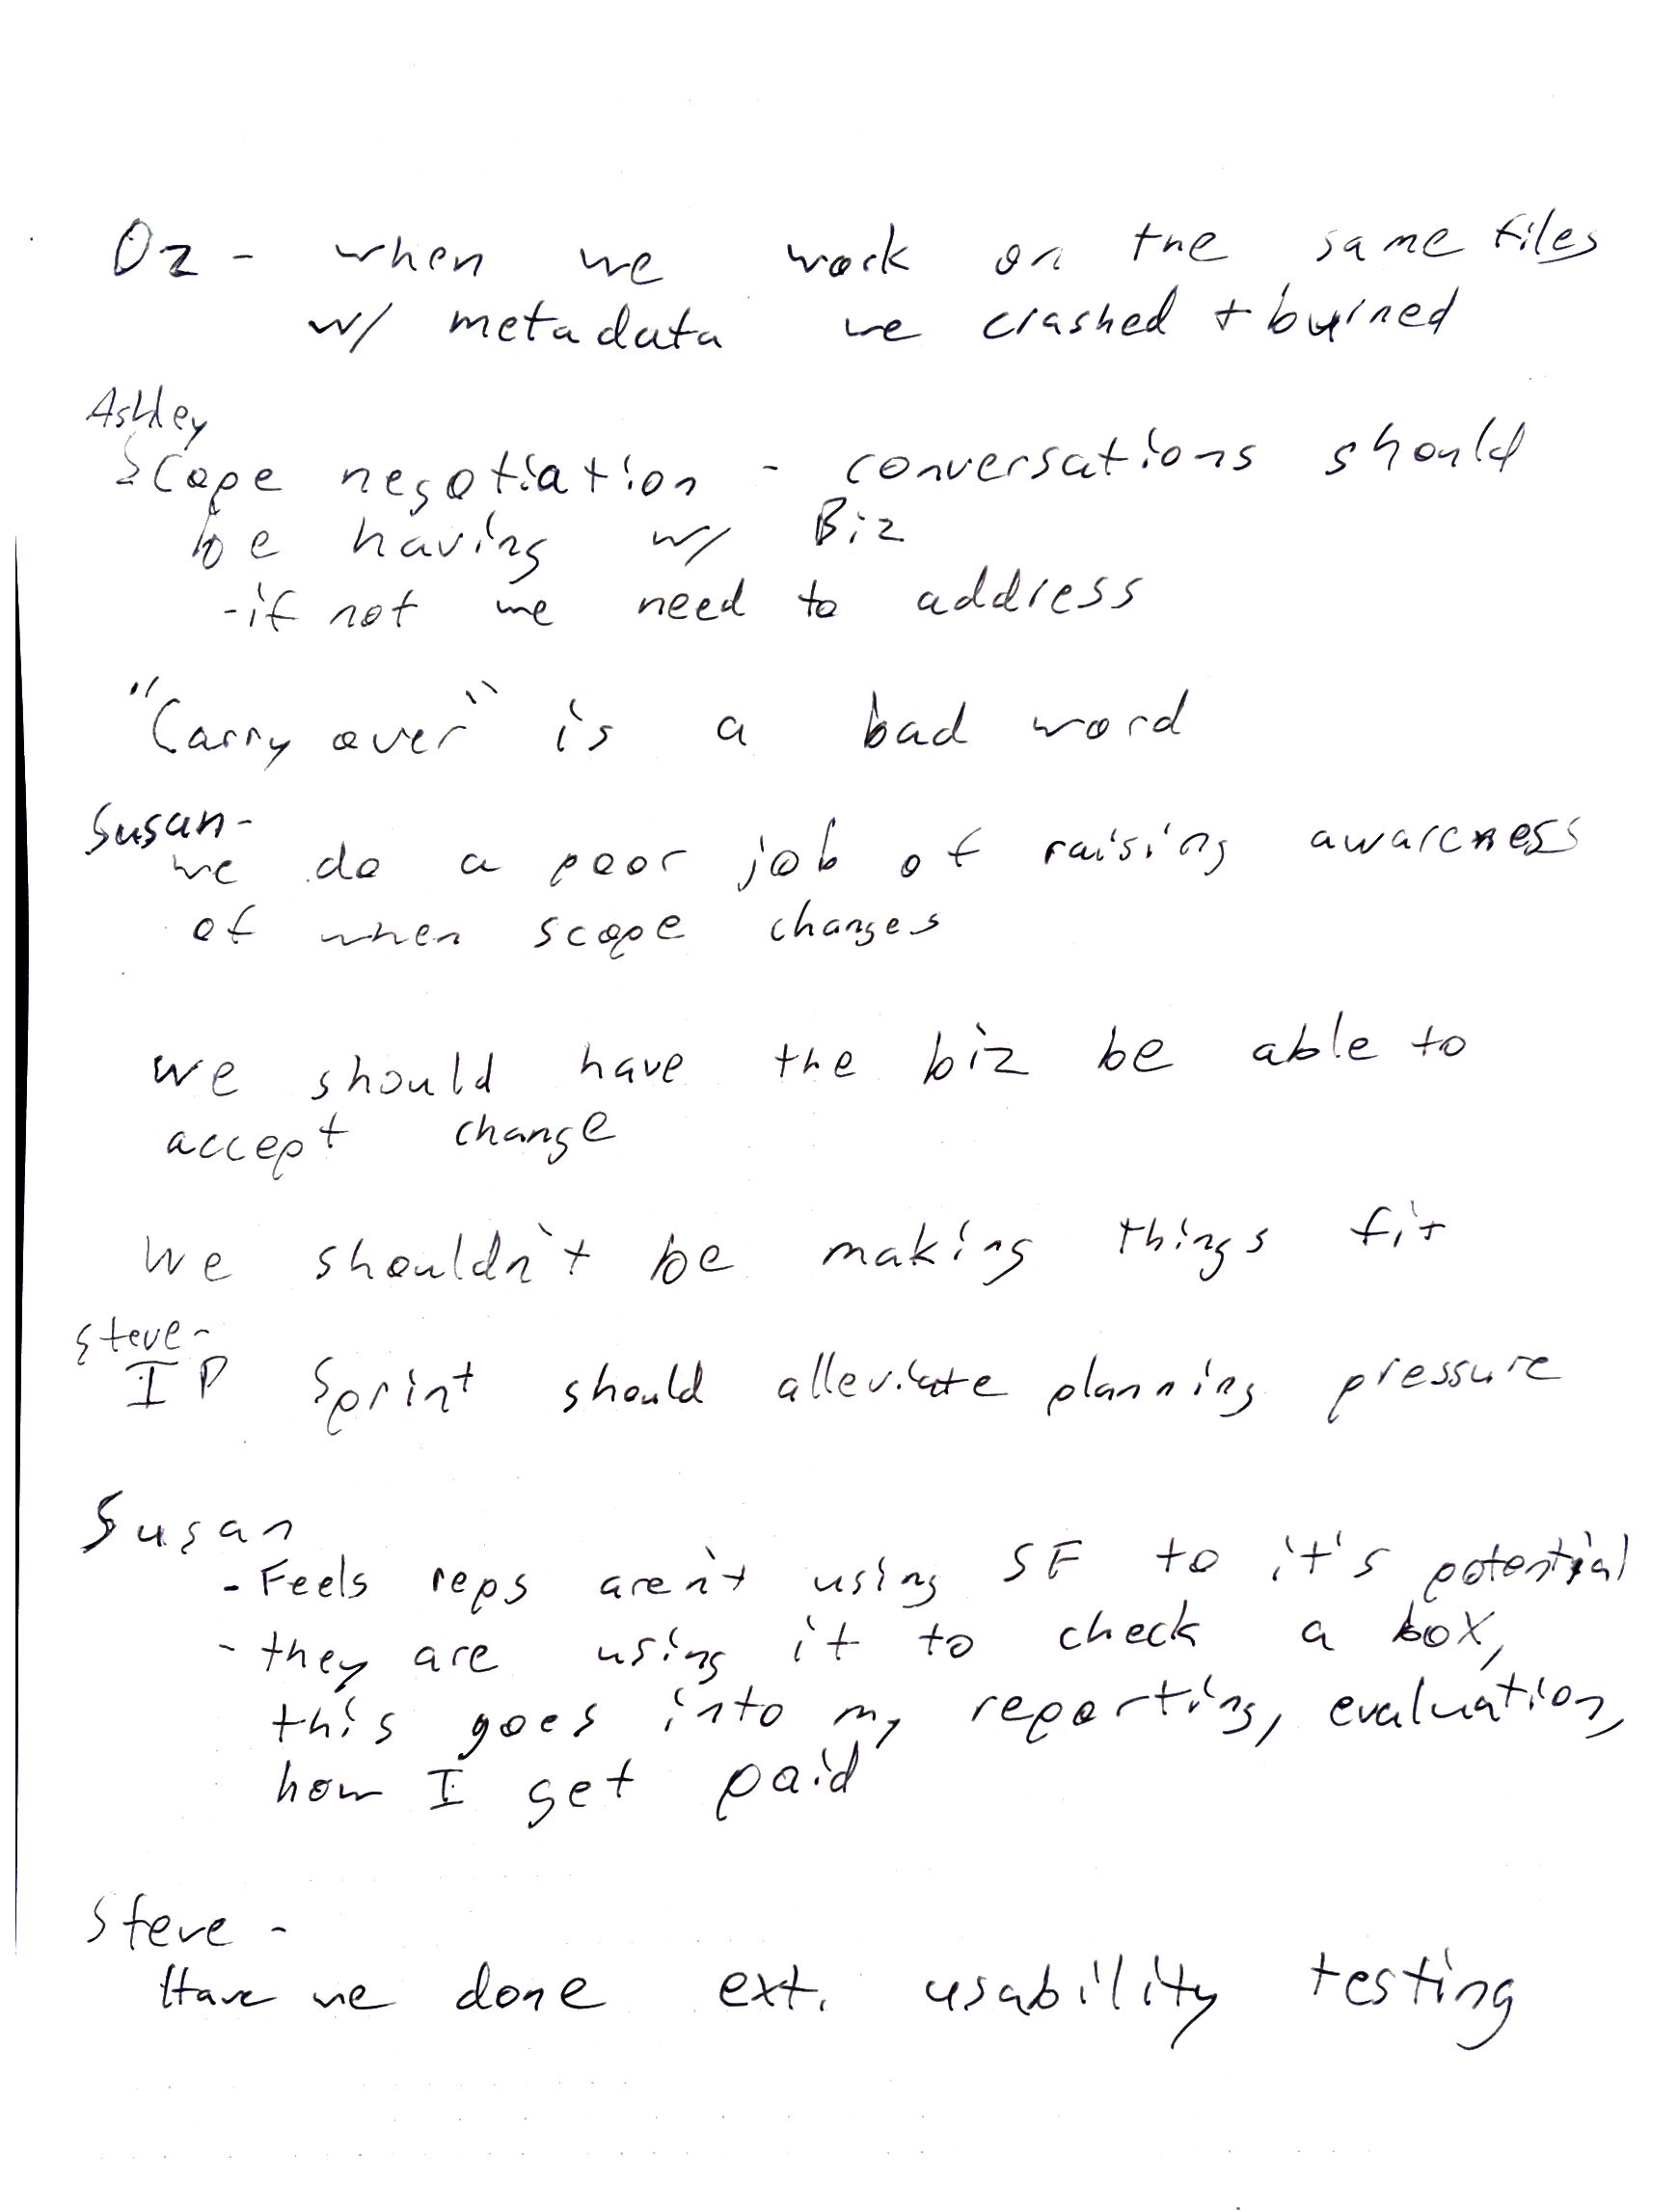 Oz - when we work on the same files
w/ metadata we crashed + burned
Ashley
Scope negotiation - conversations should
be having w/ Biz
- if not we need to address
"Carry over" is a bad word
Susan-
we do a poor job of raising awareness
of when scope changes
we should have the biz be able to
accept change
We shouldn't be making things fit
Steve-
IP Sprint should alleviate planning pressure
Susan
- Feels reps aren't using SF to it's potential
- they are using it to check a box,
this goes into my reporting, evaluation,
how I get paid
Steve -
Have we done ext. usability testing